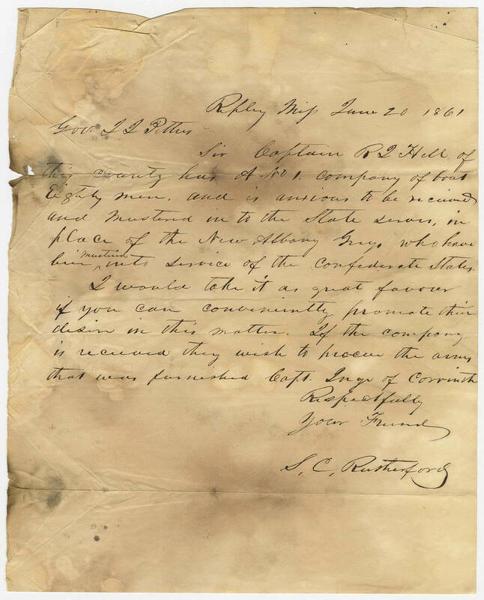 Ripley Miss June 20 1861
Gov. J J Pettus
Sir Captain R J Hill of
this county has A No 1. company of bout
Eighty men, and is anxious to be recieved
and Mustered in to the State servis, in
place of the New Albany Greys who have
been mustered into service of the Confederate States
I would take it as great favour
if you can conveniently promote their
desire in this matter. If the company
is received they wish to procure the arms
that was furnished Capt. Inge of Corinth
Respectfully
Your Friend
S, C, Rutherford